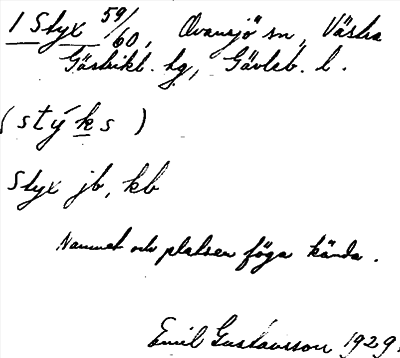 1 Styx 59/60, Ovansjö sn, Västra
Gästrikl. hg, Gävleb. l.
(stýks)
Styx jb, kb
Namnet och platsen föga kända.
Emil Gustavsson 1929.